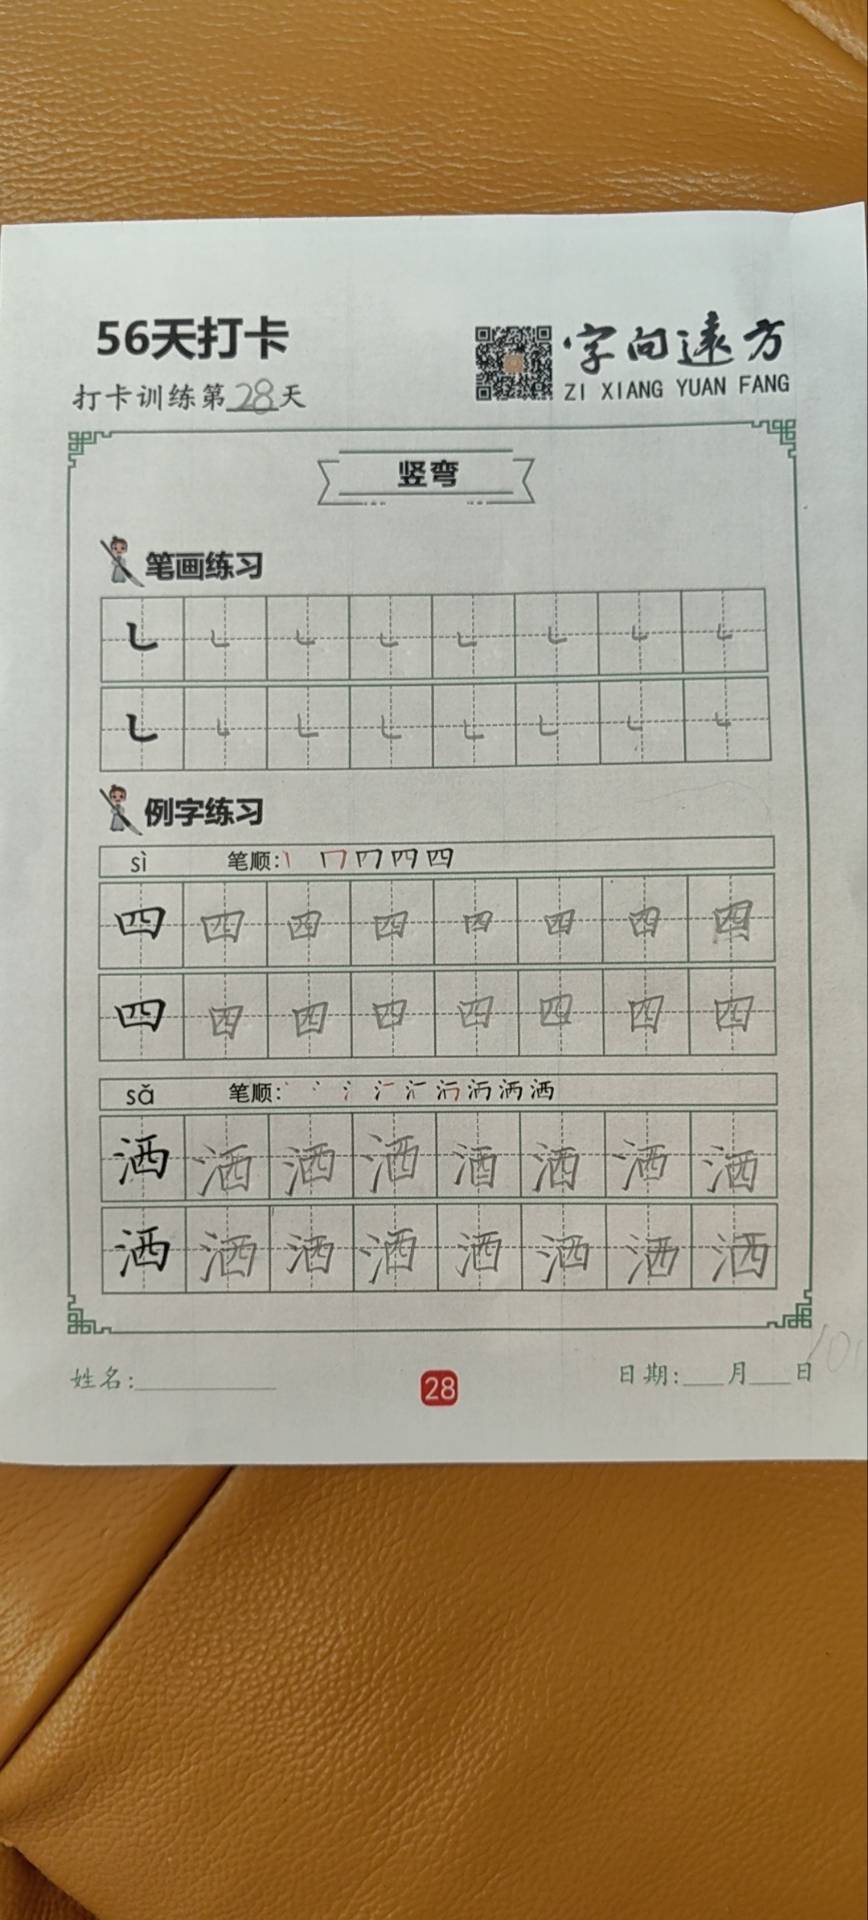 56天打卡
字向遠方
打卡训练第28天
ZI XIANG YUAN FANG
竖弯
笔画练习
㇄ ㇄ ㇄ ㇄ ㇄ ㇄ ㇄ ㇄
㇄ ㇄ ㇄ ㇄ ㇄ ㇄ ㇄ ㇄
例字练习
sì 笔顺:
四 四 四 四 四 四 四 四
四 四 四 四 四 四 四 四
sǎ 笔顺:
洒 洒 洒 洒 洒 洒 洒 洒
洒 洒 洒 洒 洒 洒 洒 洒
姓名:
28
日期:___月___日